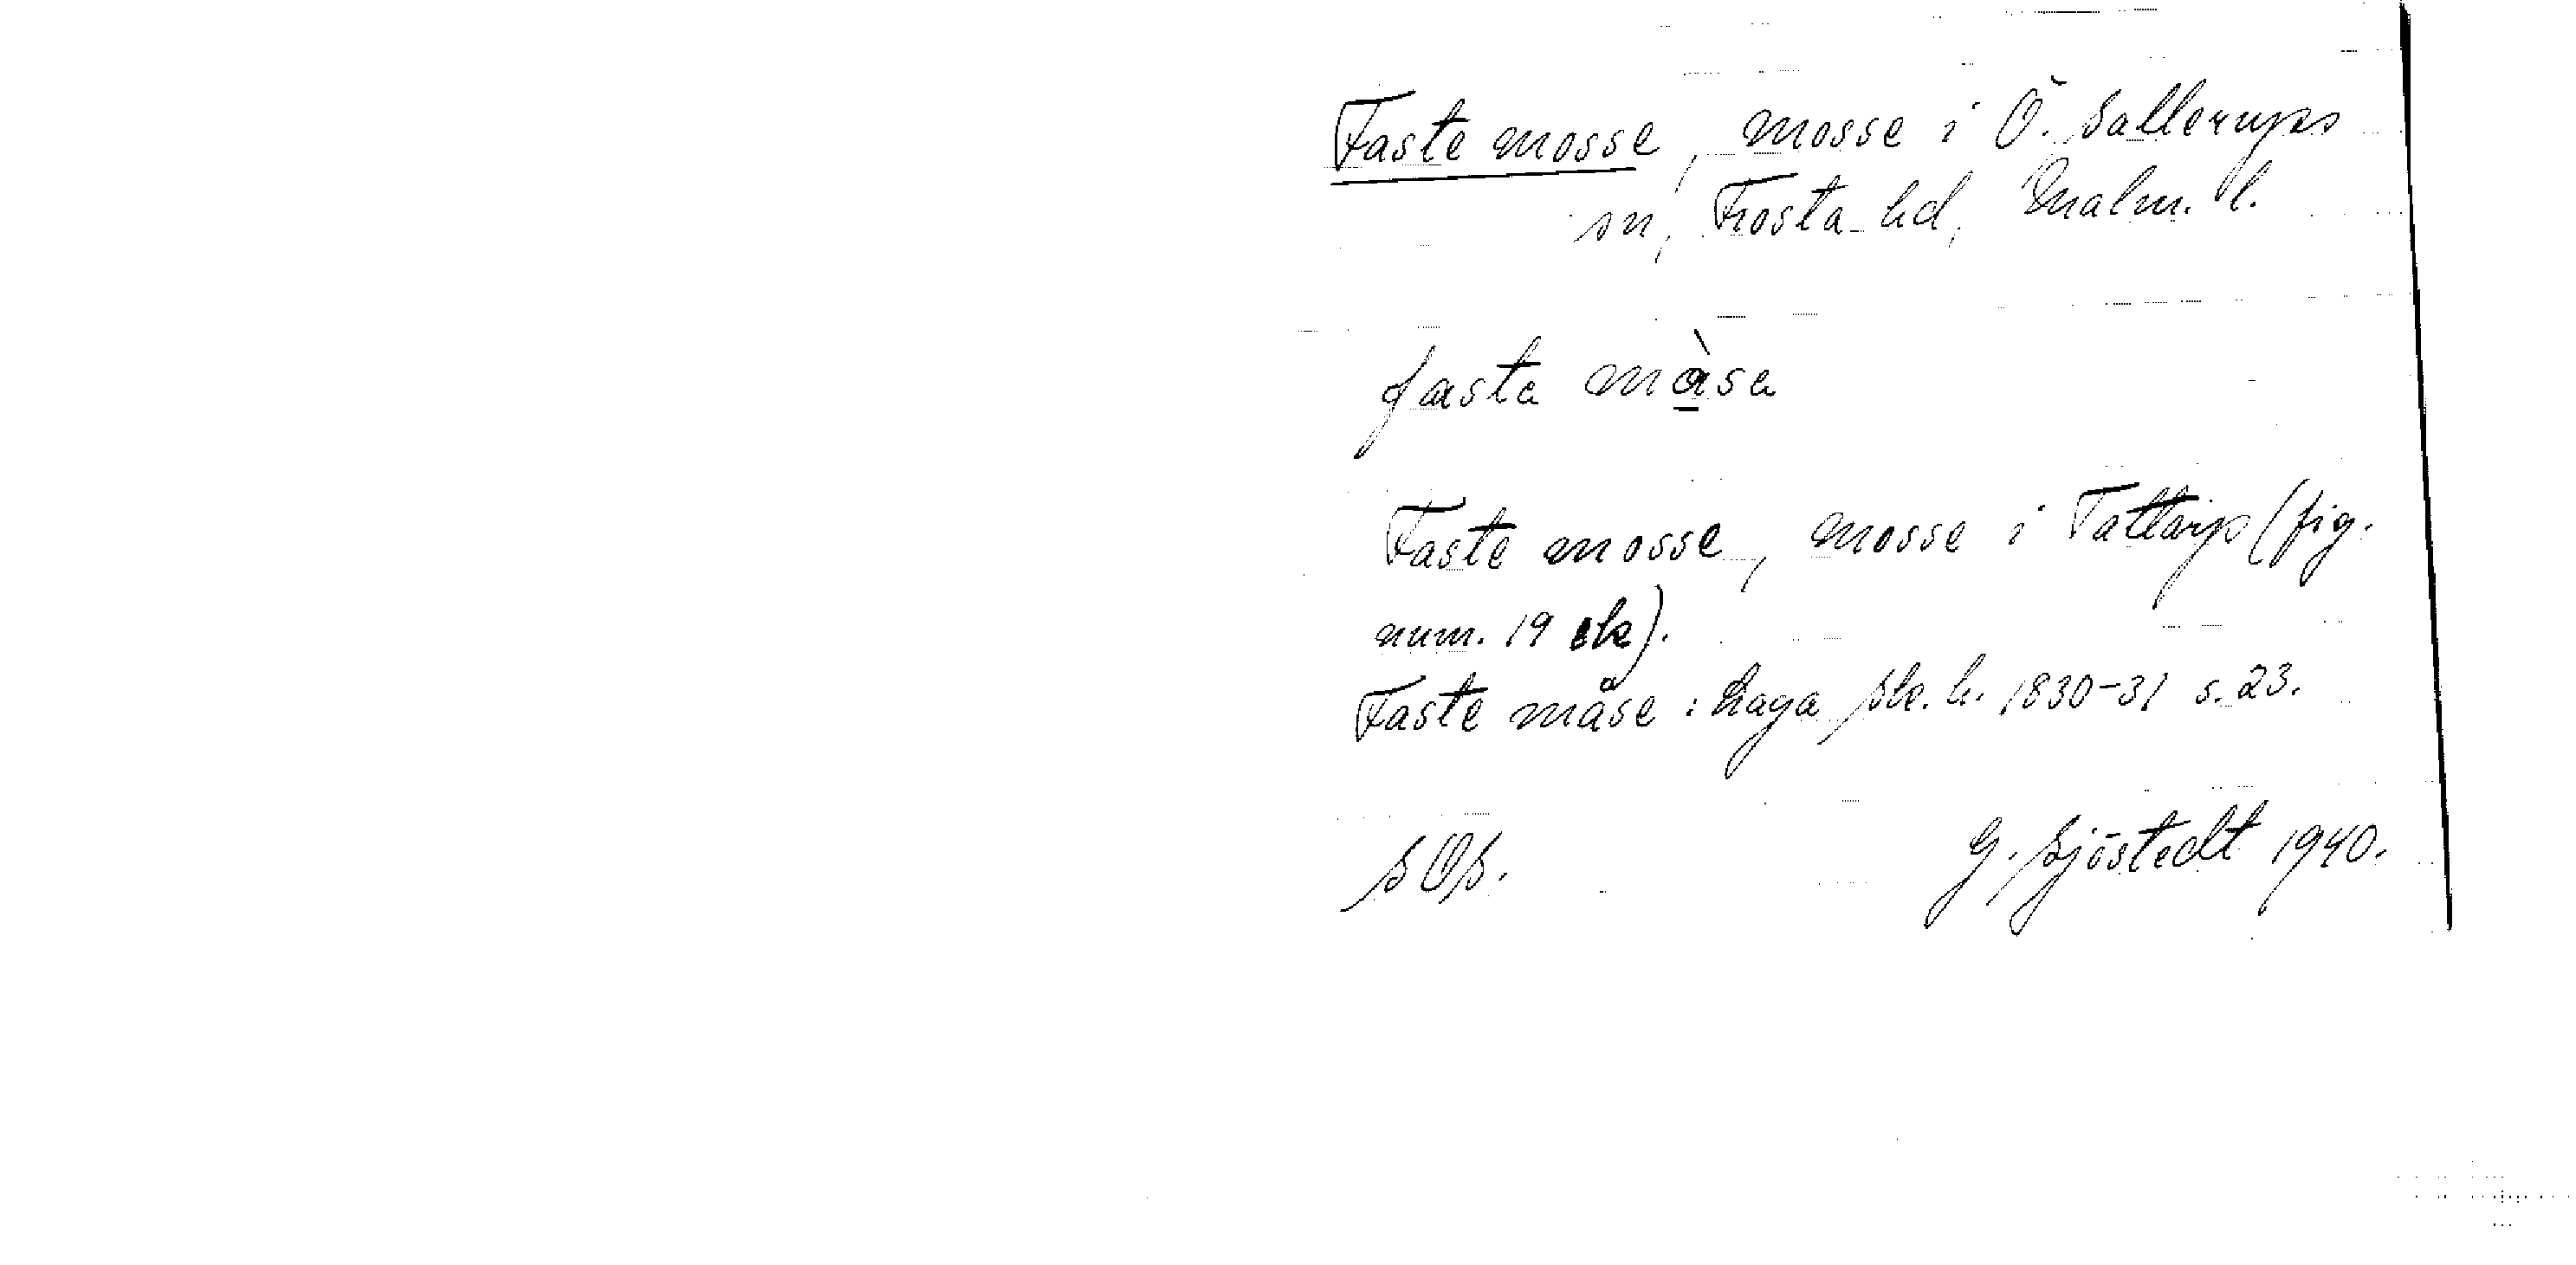 Faste mosse, mosse i Ö. Sallerups
sn, Frosta hd, Malm. l.
fasta måsa
Faste mosse, mosse i Tattarp (fig.
num. 19 sk).
Faste måse: Laga sk. h. 1830-31 s. 23.
SOS.
G. Sjöstedt 1940.